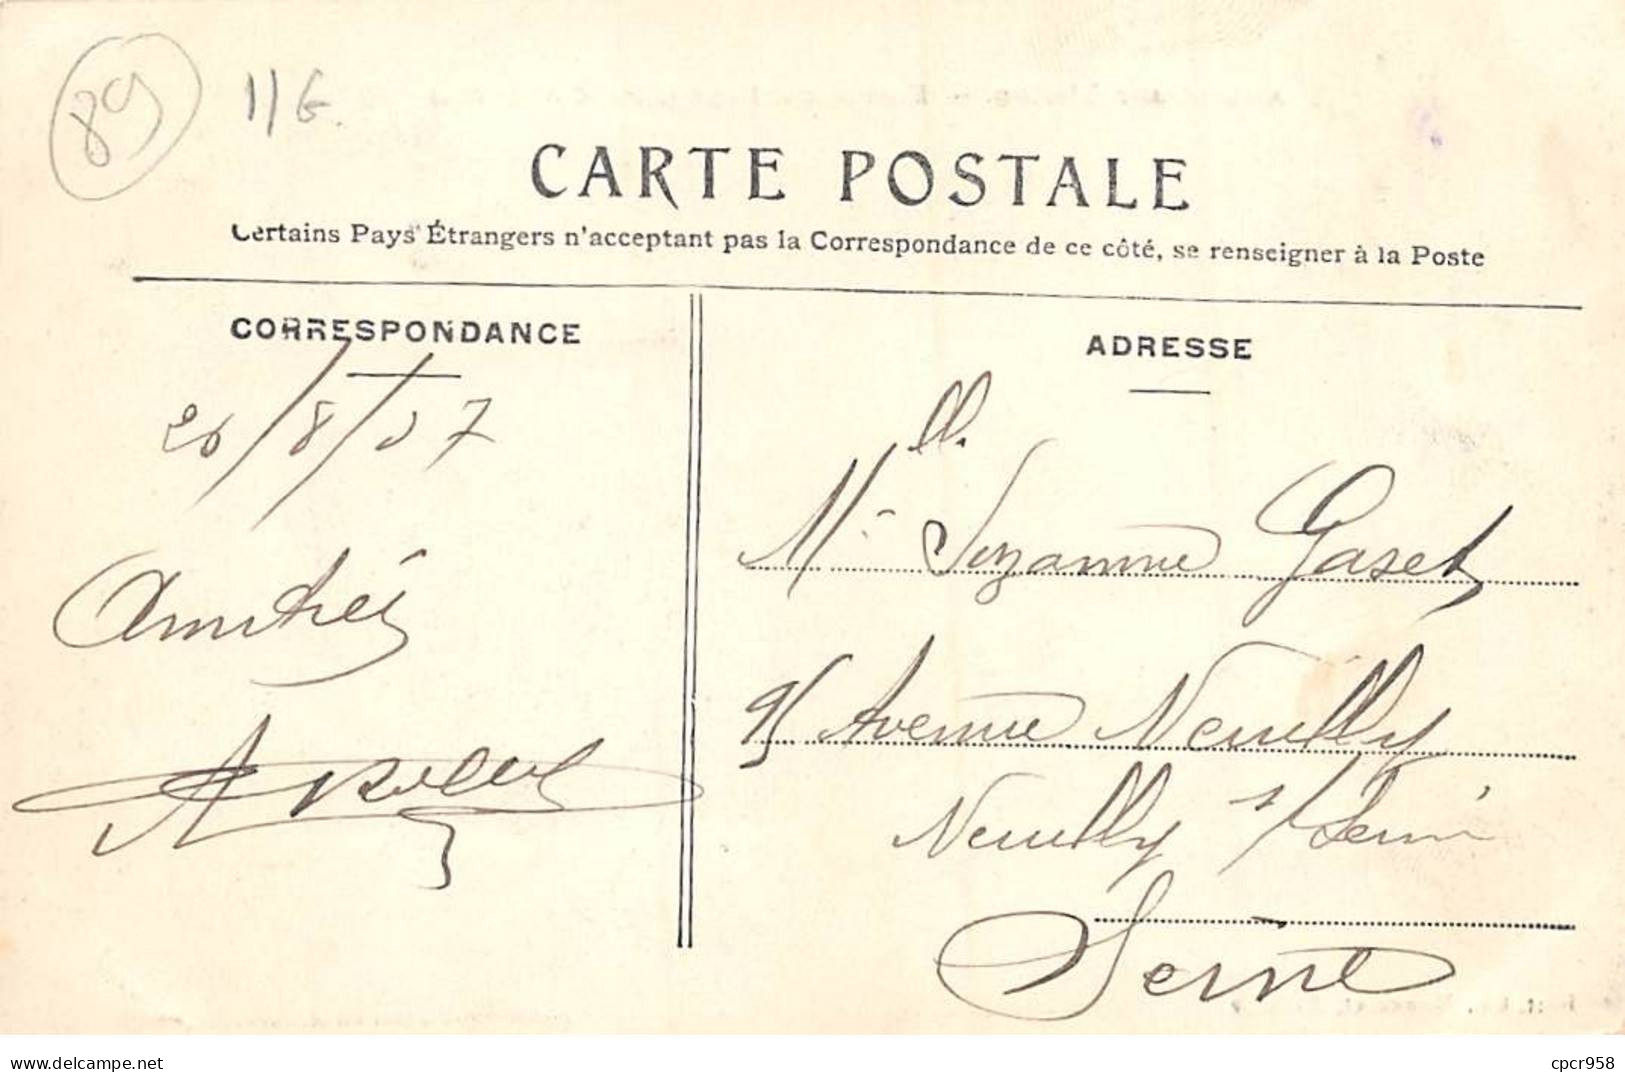 89
11 G.
CARTE POSTALE
Certains Pays Étrangers n'acceptant pas la Correspondance de ce côté, se renseigner à la Poste
CORRESPONDANCE
ADRESSE
26/8/07
Amitiés
Mlle Suzanne Gaset
95 Avenue Neuilly
Neuilly s/ Seine
Seine
www.delcampe.net
cpcr958